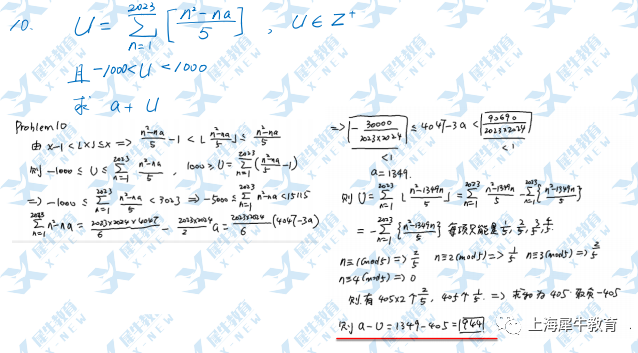 10. U = \sum_{n=1}^{2023} [\frac{n²-na}{5}], U∈Z⁺
且 -1000<U<1000
求 a+U
Problem 10
由 x-1<⌊x⌋≤x => \frac{n²-na}{5} - 1 < ⌊\frac{n²-na}{5}⌋ ≤ \frac{n²-na}{5}
则 -1000 ≤ U ≤ \sum_{n=1}^{2023} \frac{n²-na}{5}, 1000≥U = \sum_{n=1}^{2023} (\frac{n²-na}{5} - 1)
=> -1000 ≤ \sum_{n=1}^{2023} \frac{n²-na}{5} < 3023 => -5000 ≤ \sum_{n=1}^{2023} n²-na < 15115
\sum_{n=1}^{2023} n²-na = \frac{2023×2024×4047}{6} - \frac{2023×2024}{2} a = \frac{2023×2024}{6} (4047-3a)
=> -\frac{30000}{2023×2024} ≤ 4047-3a < \frac{90690}{2023×2024}
<1 <1
a=1349.
则 U = \sum_{n=1}^{2023} ⌊\frac{n²-1349n}{5}⌋ = \sum_{n=1}^{2023} \frac{n²-1349n}{5} - \sum_{n=1}^{2023} {\frac{n²-1349n}{5}}
= -\sum_{n=1}^{2023} {\frac{n²-1349n}{5}} 每项只能是 \frac{1}{5}, \frac{2}{5}, \frac{3}{5}, \frac{4}{5}
n≡1(mod5) => \frac{2}{5} n≡2(mod5) => \frac{1}{5} n≡3(mod5) => \frac{2}{5}
n≡4(mod5) => 0
则有 405×2个 \frac{2}{5}, 405个 \frac{1}{5}. => 求和为 405 取负 -405
则 a-U = 1349-405 = 944
上海犀牛教育
犀牛教育
X-NEW